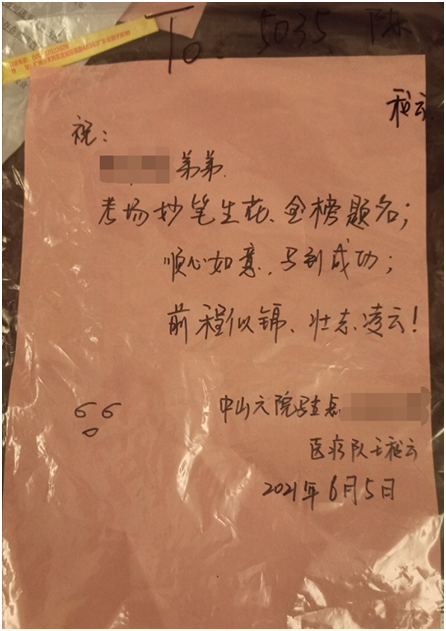 To 5035
祝:
弟弟
考场妙笔生花、金榜题名;
顺心如意、马到成功;
前程似锦、壮志凌云!
中山六院
医疗队
2021年6月5日